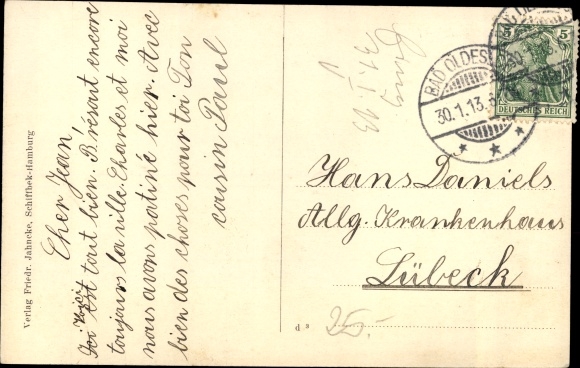 Verlag Friedr. Jahncke, Schiffbek-Hamburg
Cher Jean,
Ici est tout bien. Brésant encore
toujours la ville. Charles et moi
nous avons patiné hier. Avec
bien des choses pour toi Ton
cousin Paul
BAD OLDES
30.1.13.
5 5
DEUTSCHES REICH
Hans Daniels
Allg. Krankenhaus
Lübeck
d s
25.-